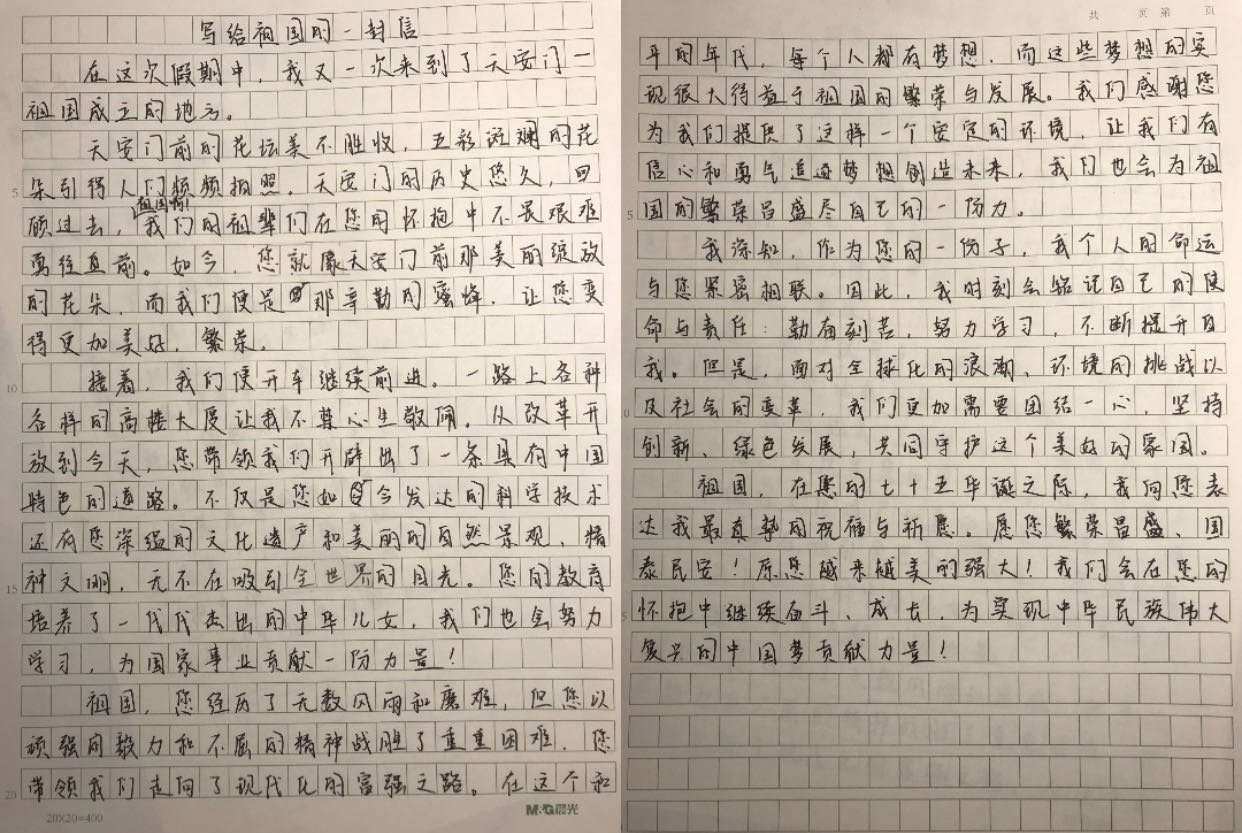 写给祖国的一封信
在这次假期中，我又一次来到了天安门一
祖国成立的地方。
天安门前的花坛美不胜收，五彩斑斓的花
朵引得人们频频拍照。天安门的历史悠久，回
祖国啊！
顾过去，我们的祖辈们在您的怀抱中不畏艰难
勇往直前。如今，您就像天安门前那美丽绽放
的花朵，而我们便是那辛勤的蜜蜂，让您变
得更加美好，繁荣。
10 接着，我们便开车继续前进。一路上各种
各样的高楼大厦让我不禁心生敬佩。从改革开
放到今天，您带领我们开辟出了一条具有中国
特色的道路。不仅是您如今发达的科学技术
还有您深缊的文化遗产和美丽的自然景观、精
15 神文明，无不在吸引全世界的目光。您的教育
培养了一代代杰出的中华儿女，我们也会努力
学习，为国家事业贡献一份力量！
祖国，您经历了无数风雨和磨难，但您以
顽强的毅力和不屈的精神战胜了重重困难，您
20 带领我们走向了现代化的富强之路。在这个和
20X20=400 M&G晨光
共 页 第 页
平的年代，每个人都有梦想，而这些梦想的实
现很大得益于祖国的繁荣与发展。我们感谢您
为我们提供了这样一个安定的环境，让我们有
信心和勇气追逐梦想创造未来，我们也会为祖
5 国的繁荣昌盛尽自己的一份力。
我深知，作为您的一份子，我个人的命运
与您紧密相联。因此，我时刻会铭记自己的使
命与责任：勤奋刻苦，努力学习，不断提升自
我。但是，面对全球化的浪潮、环境的挑战以
及社会的变革，我们更加需要团结一心，坚持
创新、绿色发展，共同守护这个美好的家园。
祖国，在您的七十五华诞之际，我向您表
达我最真挚的祝福与祈愿。愿您繁荣昌盛、国
泰民安！愿您越来越美的强大！我们会在您的
怀抱中继续奋斗、成长，为实现中华民族伟大
复兴的中国梦贡献力量！